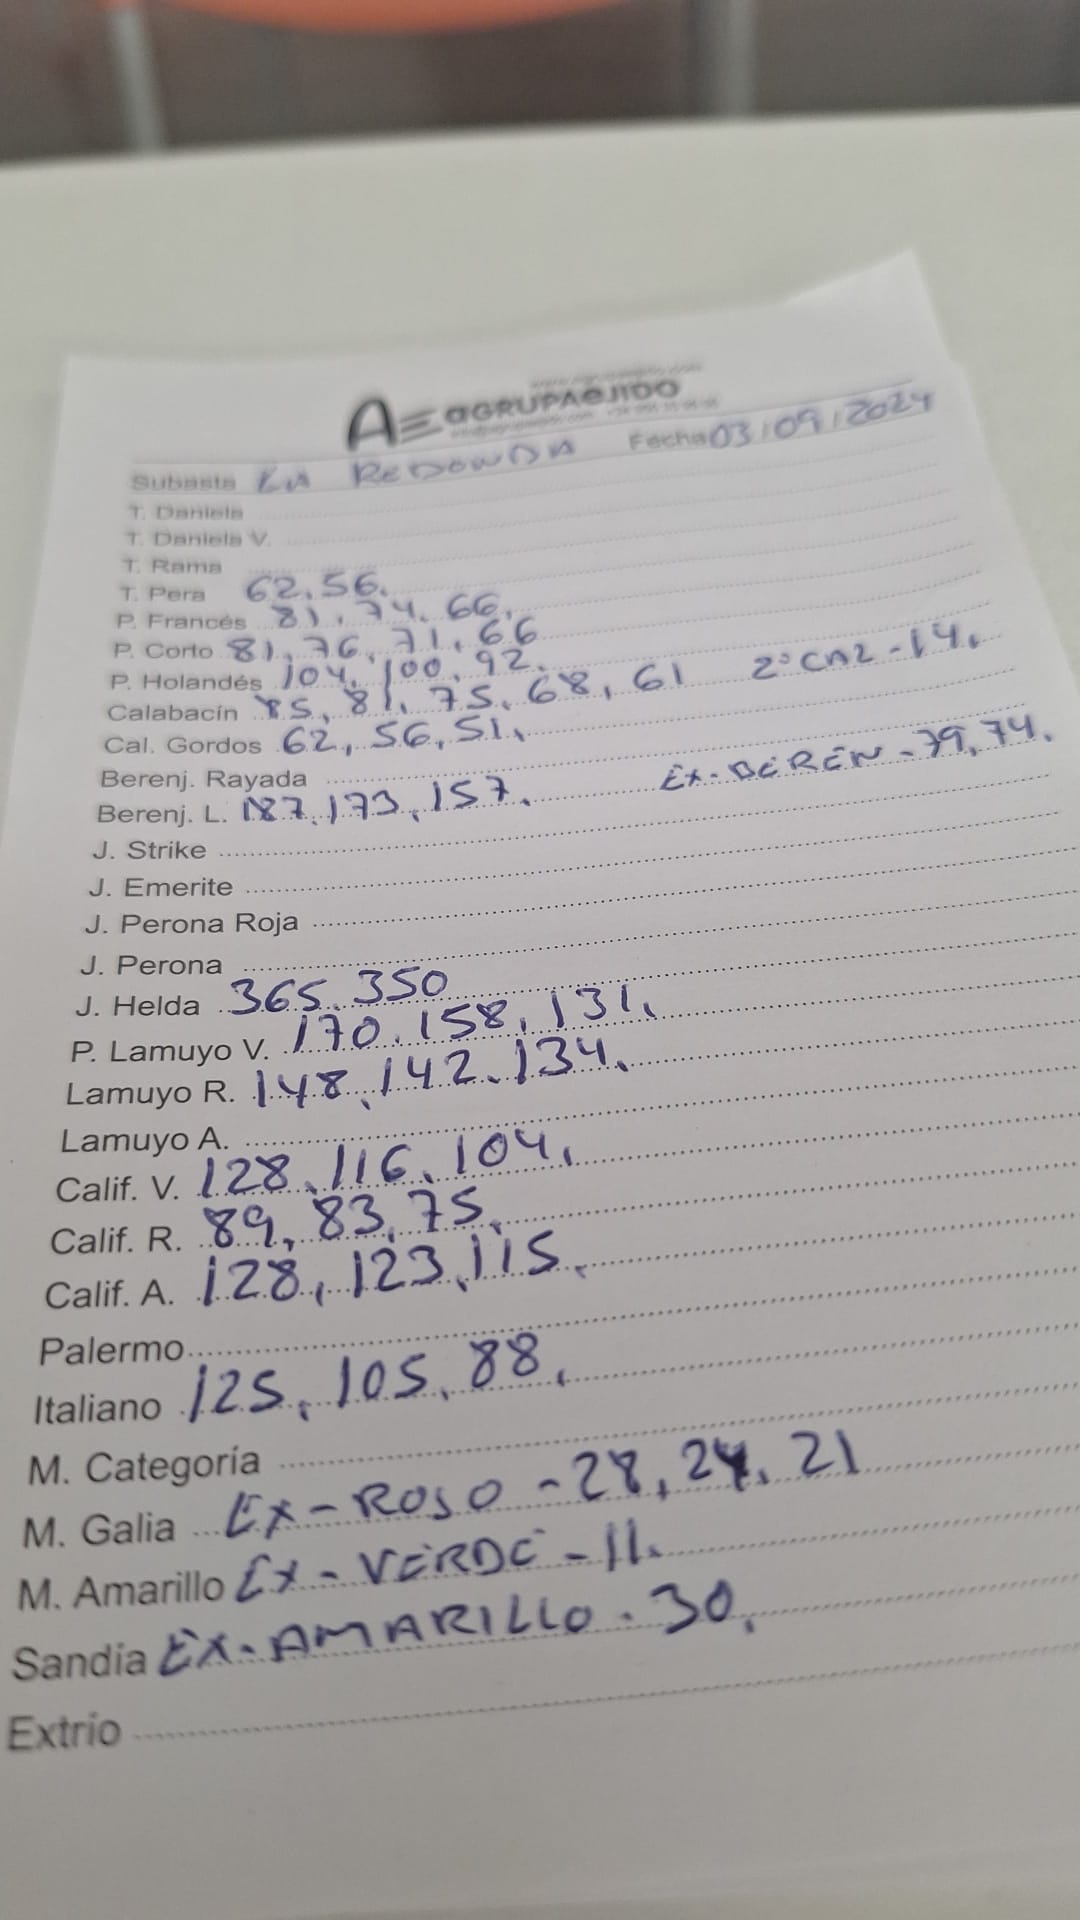 AGRUPAEJIDO
Subasta LA REDONDA Fecha 03/09/2024
T. Daniela
T. Daniela V.
T. Rama
T. Pera 62, 56.
P. Francés 81, 74, 66,
P. Corto 81, 76, 71, 66
P. Holandés 104, 100, 92.
Calabacín 85, 81, 75, 68, 61 2º CAL - 14.
Cal. Gordos 62, 56, 51,
Berenj. Rayada EX-BEREN - 79, 74.
Berenj. L. 187, 173, 157.
J. Strike
J. Emerite
J. Perona Roja
J. Perona
J. Helda 365, 350
P. Lamuyo V. 170, 158, 131,
Lamuyo R. 148, 142, 134,
Lamuyo A.
Calif. V. 128, 116, 104,
Calif. R. 89, 83, 75,
Calif. A. 128, 123, 115,
Palermo
Italiano 125, 105, 88,
M. Categoría
M. Galia EX-ROJO - 28, 24, 21
M. Amarillo EX-VERDE - 11.
Sandia EX-AMARILLO - 30,
Extrio